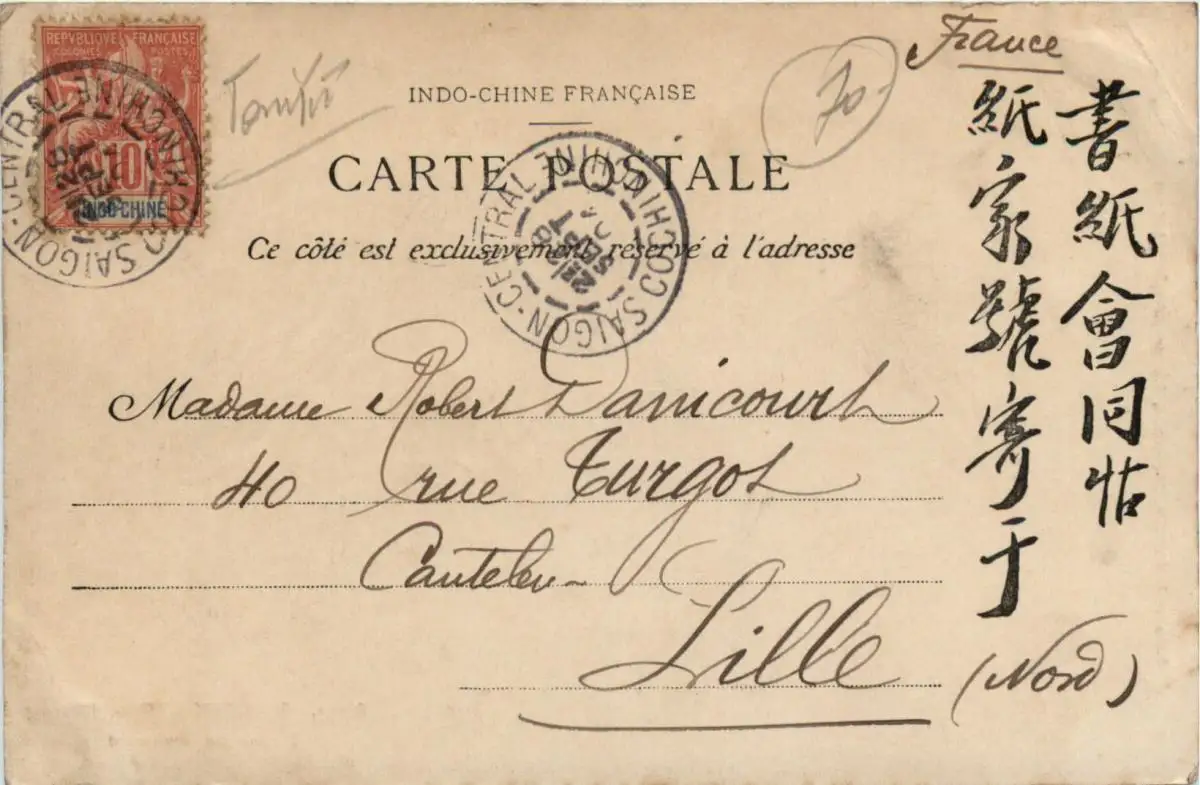 REPVBLIQUE FRANÇAISE
COLONIES POSTES
10
INDO-CHINE
SAIGON-CENTRAL COCHINCHINE
INDO-CHINE FRANÇAISE
CARTE POSTALE
Ce côté est exclusivement réservé à l'adresse
SAIGON-CENTRAL COCHINCHINE
70-
France
書紙會同帖
紙家號寄于
Madame Robert Danicourt
40 rue Turgot
Canteleu
Lille
(Nord)